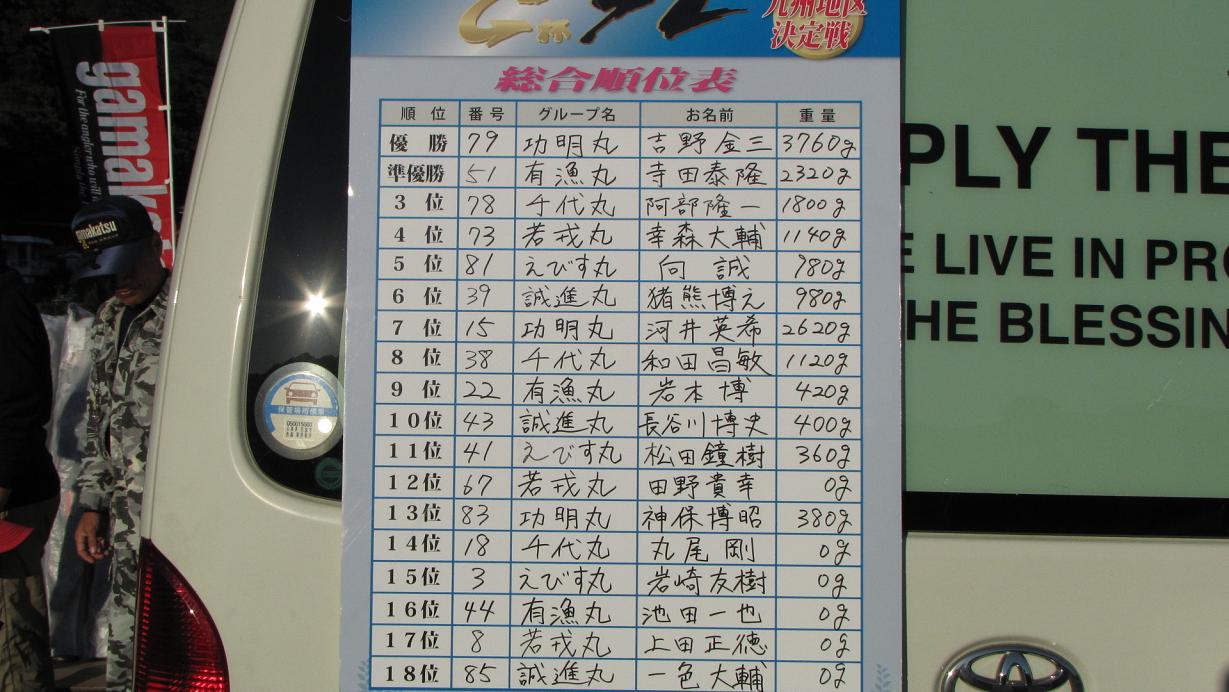 G杯グレ
九州地区
決定戦
総合順位表
順位 番号 グループ名 お名前 重量
優勝 79 功明丸 吉野金三 3760g
準優勝 51 有漁丸 寺田泰隆 2320g
3位 78 千代丸 阿部隆一 1800g
4位 73 若戎丸 幸森大輔 1140g
5位 81 えびす丸 向誠 980g
6位 39 誠進丸 猪熊博之 980g
7位 15 功明丸 河井英希 2620g
8位 38 千代丸 和田昌敏 1120g
9位 22 有漁丸 岩本博 420g
10位 43 誠進丸 長谷川博史 400g
11位 41 えびす丸 松田鐘樹 360g
12位 67 若戎丸 田野貴幸 0g
13位 83 功明丸 神保博昭 380g
14位 18 千代丸 丸尾剛 0g
15位 3 えびす丸 岩崎友樹 0g
16位 44 有漁丸 池田一也 0g
17位 8 若戎丸 上田正徳 0g
18位 85 誠進丸 一色大輔 0g
gamaka
For the angler who will
gamakatsu
保管場所標章
PLY THE
E LIVE IN PRO
HE BLESSIN